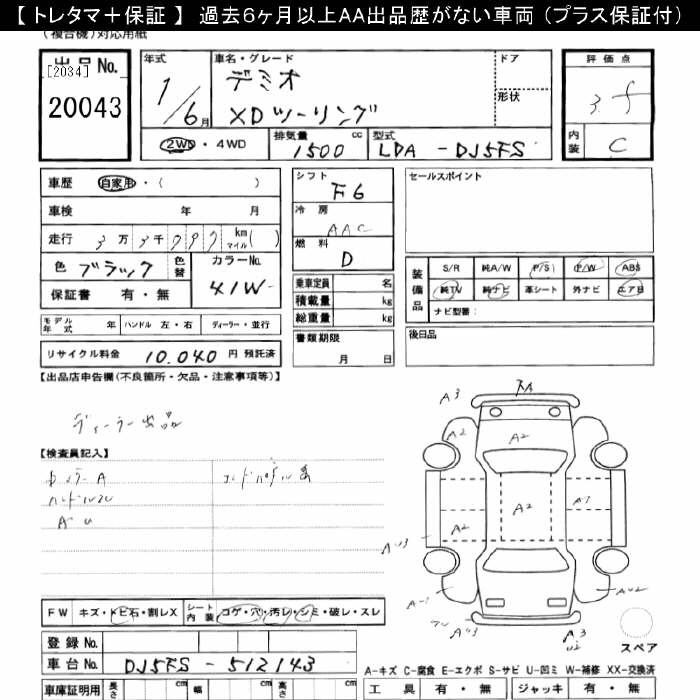 【 トレタマ＋保証 】 過去6ヶ月以上AA出品歴がない車両 （プラス保証付）
（複合機）対応用紙
出品No.
[2034]
20043
年式
1/6月
車名・グレード
デミオ
XDツーリング
ドア
形状
評価点
3.5
内装
C
2WD ・ 4WD
排気量
1500 cc
型式
LDA - DJ5FS
車歴 自家用・（ ）
車検 年 月
走行 3万3千997 km マイル( )
色 ブラック 色替
カラーNo.
41W
保証書 有・無
モデル年式 年 ハンドル 左・右 ディーラー・並行
リサイクル料金 10.040 円 預託済
シフト
F6
冷房
AAC
燃料
D
乗車定員 名
積載量 kg
総重量 kg
書類期限
月 日
セールスポイント
装備品
S/R 純A/W P/S P/W ABS
純TV 純ナビ 革シート 外ナビ エアB
ナビ型番：
後日品
【出品店申告欄(不良箇所・欠品・注意事項等)】
ディーラー出品
【検査員記入】
ハンドルスレ
A・U
A3
A2
A2
A2
A2
A1
A-1
スペア
FW キズ・トビ石・割レX
シート内装 コゲ・穴・汚レ・シミ・破レ・スレ
登録No.
車台No. DJ5FS - 512143
車庫証明用 長さ cm 幅 cm 高さ cm
A-キズ C-腐食 E-エクボ S-サビ U-凹ミ W-補修 XX-交換済
工具 有・無 ジャッキ 有・無